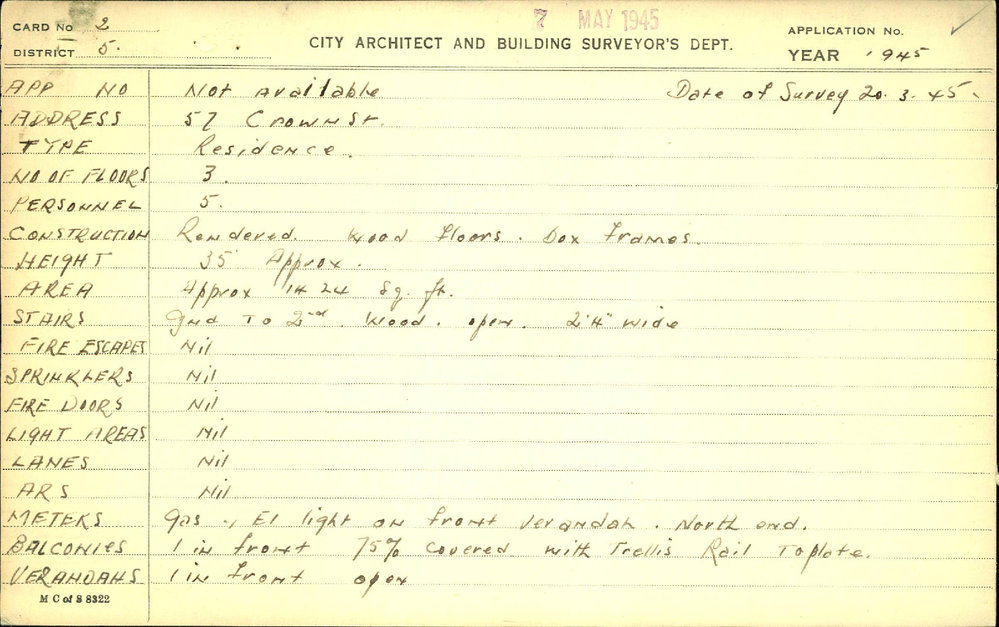 7 MAY 1945
CARD No 2
DISTRICT 5.
CITY ARCHITECT AND BUILDING SURVEYOR'S DEPT.
APPLICATION No.
YEAR 1945
APP NO Not available Date of Survey 20.3.45.
ADDRESS 57 Crown St.
TYPE Residence.
NO OF FLOORS 3.
PERSONNEL 5.
CONSTRUCTION Rendered. Wood floors. Box frames.
HEIGHT 35' Approx.
AREA Approx 1424 Sq. ft.
STAIRS Gnd To 2nd. Wood. open. 2'4" wide
FIRE ESCAPES Nil
SPRINKLERS Nil
FIRE DOORS Nil
LIGHT AREAS Nil
LANES Nil
ARS Nil
METERS Gas., El light on front verandah. North end.
BALCONIES 1 in front 75% covered with Trellis Rail To plate.
VERANDAHS 1 in front open
M C of S 8322